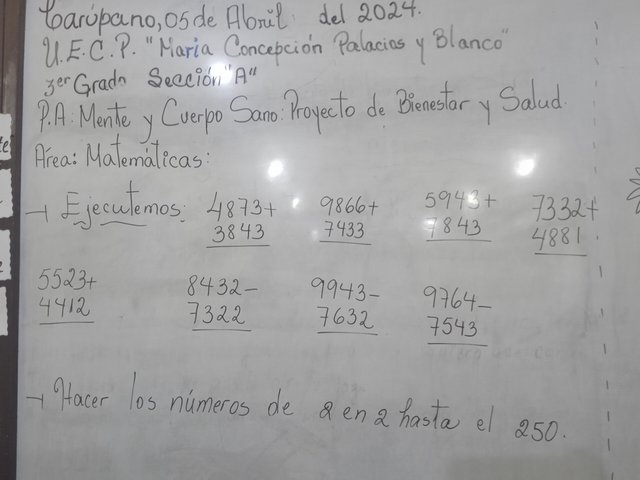 Carúpano, 05 de Abril del 2024.
U.E.C.P. "Maria Concepción Palacios y Blanco"
3er Grado Sección "A"
P.A: Mente y Cuerpo Sano: Proyecto de Bienestar y Salud.
Área: Matemáticas:
→ Ejecutemos: 4873+ 9866+ 5943+ 7332+
3843 7433 7843 4881
5523+ 8432- 9943- 9764-
4412 7322 7632 7543
→ Hacer los números de 2 en 2 hasta el 250.